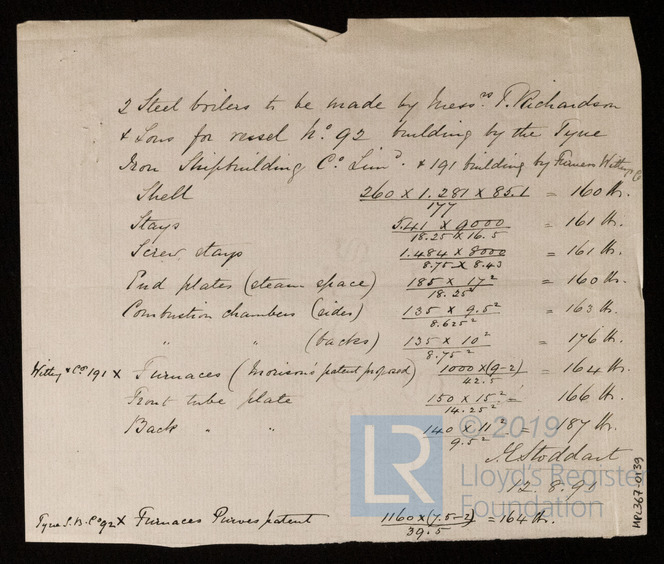 2 Steel boilers to be made by Messrs. T. Richardson
& Sons for vessel No. 92 building by the Tyne
Iron Shipbuilding Co. Limd. & 191 building by Furness Withy & Co
Shell 260 x 1.281 x 85.1 / 177 = 160 lbs.
Stays 5.41 x 9000 / 18.25 x 16.5 = 161 lbs.
Screw stays 1.484 x 8000 / 8.75 x 8.43 = 161 lbs.
End plates (steam space) 185 x 17² / 18.25² = 160 lbs.
Combustion chambers (sides) 135 x 9.5² / 8.625² = 163 lbs.
" " (backs) 135 x 10² / 8.75² = 176 lbs.
Withy & Co 191 x Furnaces (Morison's patent proposed) 1000 x (9-2) / 42.5 = 164 lbs.
Front tube plate 150 x 15² / 14.25² = 166 lbs.
Back " " 140 x 11² / 9.5² = 187 lbs.
Stoddart
12.8.91
Tyne S.B. Co 92 x Furnaces Purves patent 1160 x (7.5-2) / 39.5 = 164 lbs.
HPL367-0139
LR © 2019
Lloyd's Register
Foundation